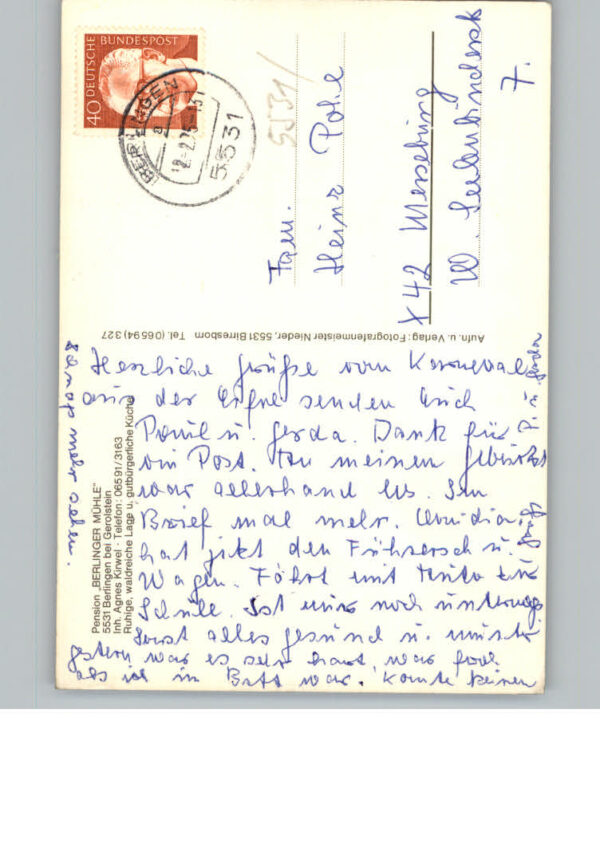 DEUTSCHE BUNDESPOST
40
BERLINGEN
a
12.-2.75-15
5531
5531/
Fam.
Heinz Pohl
X 42 Merseburg
W. Seelenbinderstr
7.
Aufn. u. Verlag: Fotografenmeister Nieder, 5531 Birresborn Tel. (06594) 327
Pension „BERLINGER MÜHLE"
5531 Berlingen bei Gerolstein
Inh. Agnes Kirwel · Telefon: 06591/3163
Ruhige, waldreiche Lage u. gutbürgerliche Küche
Herzliche Grüße vom Karneval
aus der Eifel senden Euch
Paul u. Gerda. Dank für
die Post. Zu meinen Geburtst
war allerhand los. Im
Brief mal mehr. Claudia
hat jetzt den Führersch u.
Wagen. Fährt mit Auto zur
Schule. Ist nur noch unterwegs
sonst alles gesund u. munter
gestern war es sehr hart, war froh
als ich im Bett war. Konnte keinen
Schnaps mehr sehen.
Gruß P. u. Gerda